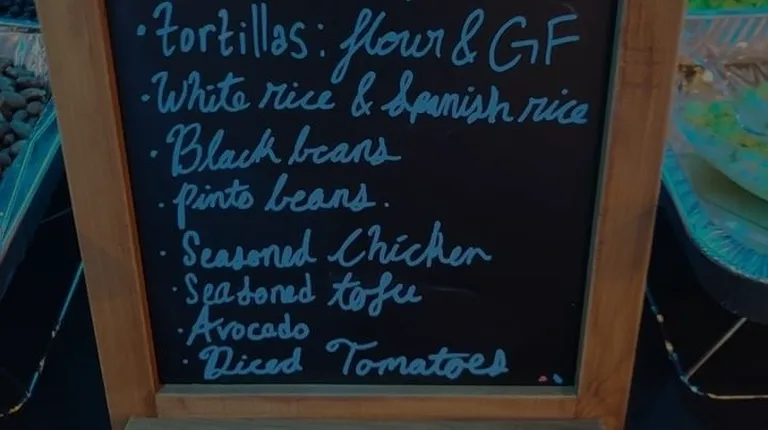 · Tortillas: flour & GF
· White rice & Spanish rice
· Black beans
· pinto beans.
· Seasoned Chicken
· Seasoned tofu
· Avocado
· Diced Tomatoes